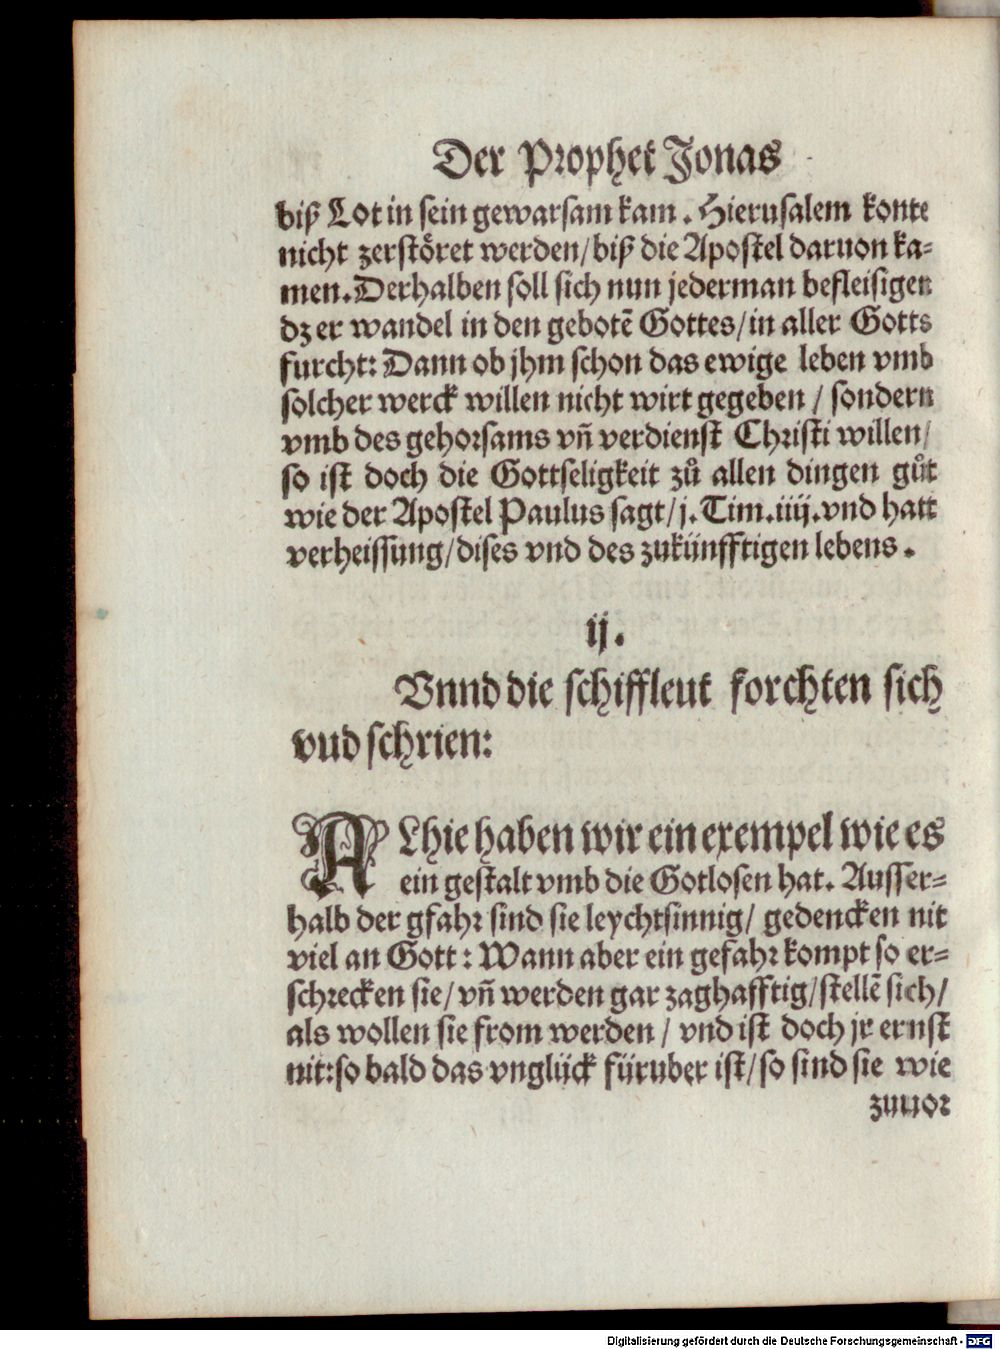 Der Prophet Jonas
biß Lot in sein gewarsam kam. Hierusalem konte
nicht zerstöret werden/ biß die Apostel daruon ka-
men. Derhalben soll sich nun jederman befleisigen
dz er wandel in den gebotẽ Gottes/ in aller Gotts
furcht: Dann ob jhm schon das ewige leben vmb
solcher werck willen nicht wirt gegeben / sondern
vmb des gehorsams vñ verdienst Christi willen/
so ist doch die Gottseligkeit zů allen dingen gůt
wie der Apostel Paulus sagt/ j. Tim. iiij. vnd hatt
verheissung/ dises vnd des zukünfftigen lebens.
ij.
Vnnd die schiffleut forchten sich
vud schrien:
ALhie haben wir ein exempel wie es
ein gestalt vmb die Gotlosen hat. Ausser-
halb der gfahr sind sie leychtsinnig/ gedencken nit
viel an Gott: Wann aber ein gefahr kompt so er-
schrecken sie/ vñ werden gar zaghafftig/ stellẽ sich/
als wollen sie from werden / vnd ist doch jr ernst
nit: so bald das vnglück füruber ist/ so sind sie wie
zuuor
Digitalisierung gefördert durch die Deutsche Forschungsgemeinschaft - DFG